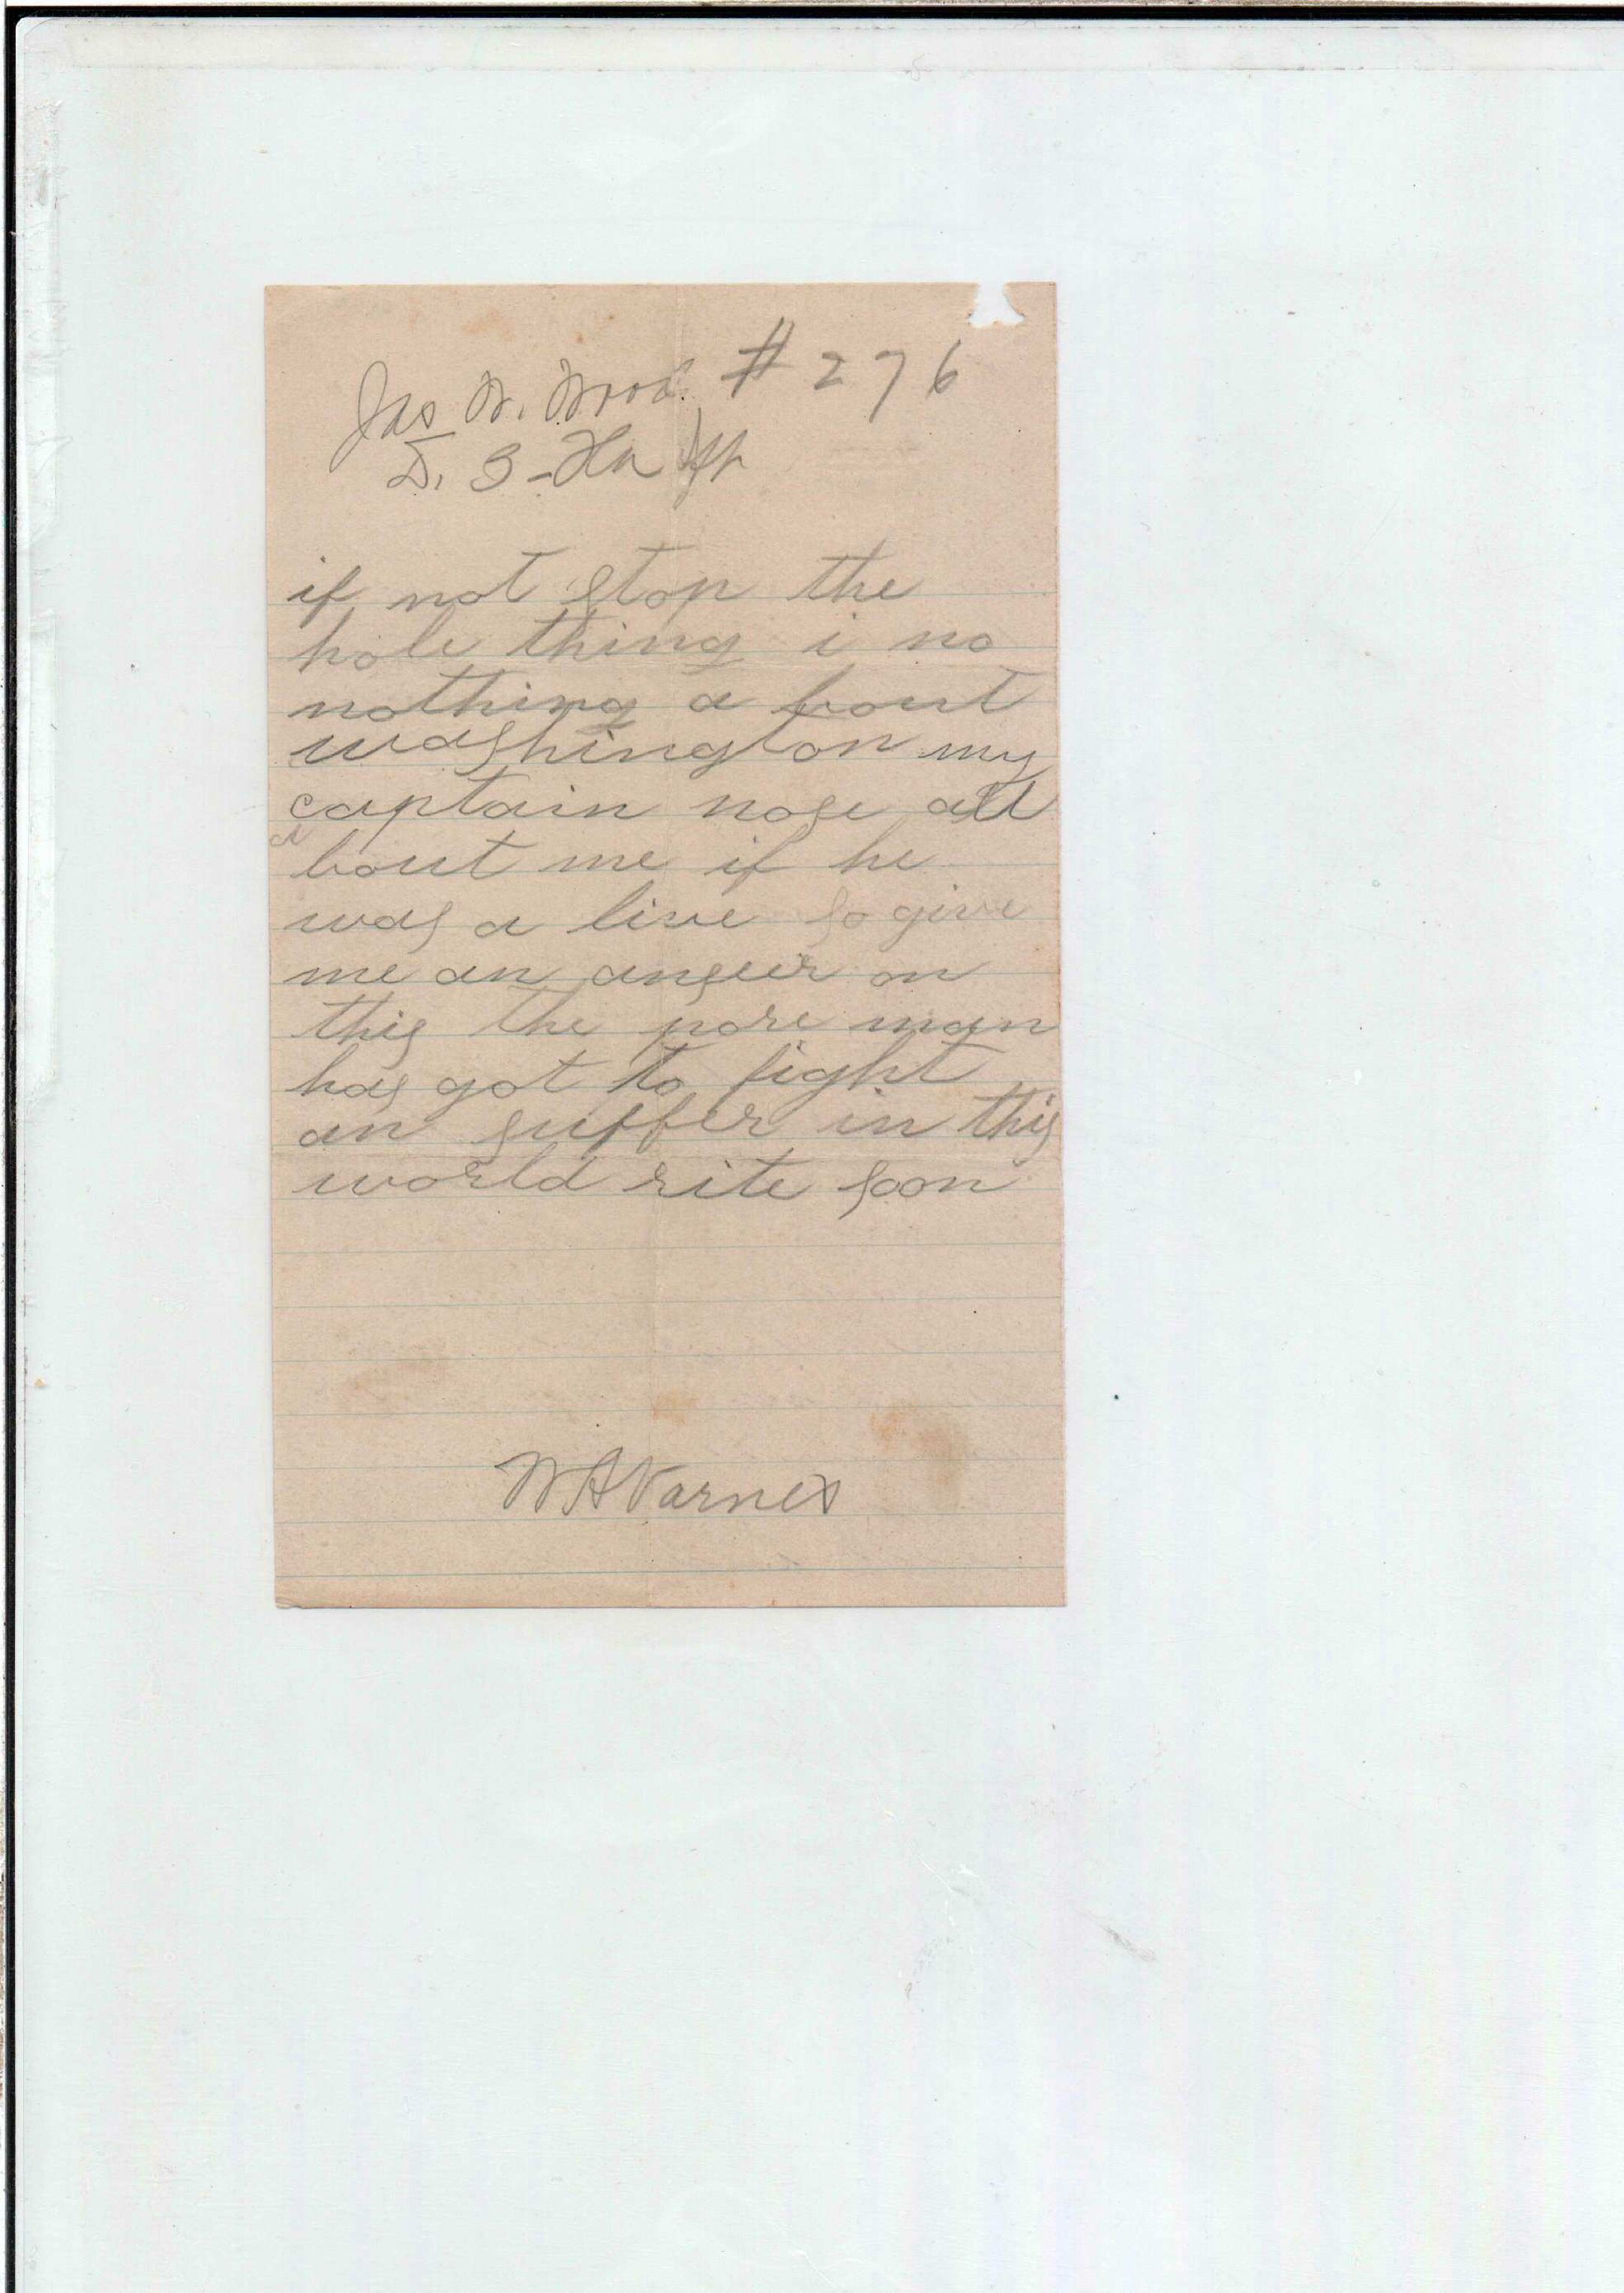 Jas W. Wood. # 276
D. S -
if not stop the
hole thing i no
nothing a bout
washington my
captain nose all
a
bout me if he
was a live so give
me an anser on
this the pore man
has got to fight
an suffer in this
world rite soon
W A Varnes